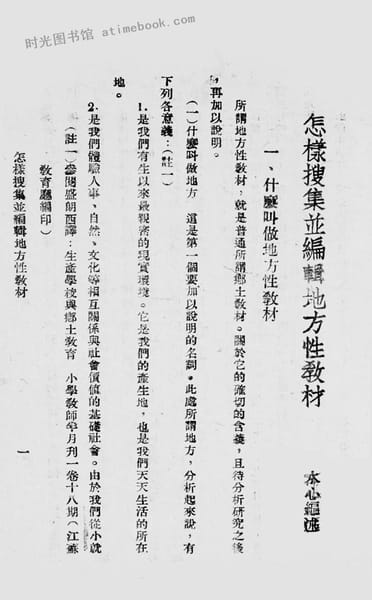 时光图书馆 atimebook.com
怎樣搜集並編輯地方性敎材
本心編述
一、什麼叫做地方性敎材
所謂地方性敎材，就是普通所謂鄉土敎材。關於它的確切的含義，且待分析研究之後
，再加以說明。
（一）什麼叫做地方　這是第一個要加以說明的名詞。此處所謂地方，分析起來說，有
下列各意義：（註一）
1.是我們有生以來最親密的現實環境。它是我們的產生地，也是我們天天生活的所在
地。
2.是我們體驗人事、自然、文化等相互關係與社會價值的基礎社會。由於我們從小就
（註一）參閱盛朗西譯：生產學校與鄉土敎育　小學敎師半月刊一卷十八期（江蘇
敎育廳編印）
怎樣搜集並編輯地方性敎材
一